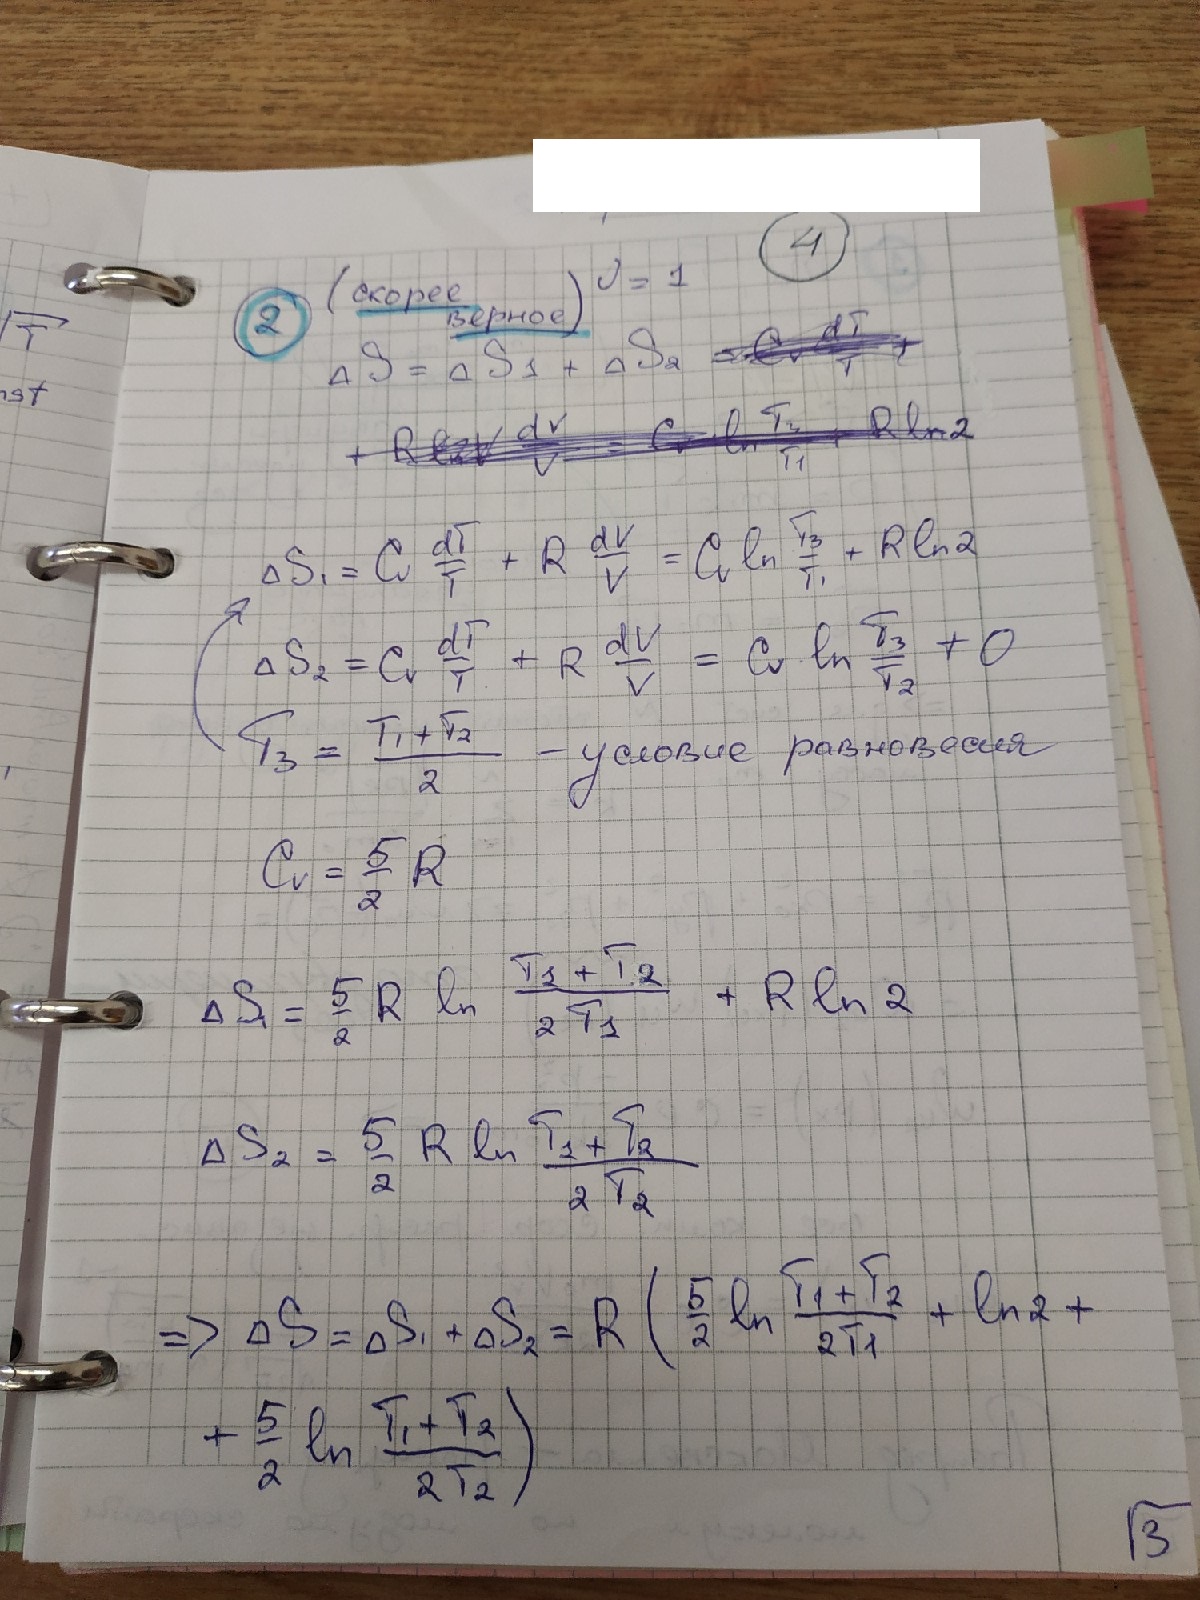 4
2 (скорее верное) ν = 1
ΔS = ΔS₁ + ΔS₂ = Cv dT/T +
+ R dV/V = Cv ln T₂/T₁ + R ln 2
ΔS₁ = Cv dT/T + R dV/V = Cv ln T₃/T₁ + R ln 2
ΔS₂ = Cv dT/T + R dV/V = Cv ln T₃/T₂ + 0
T₃ = (T₁ + T₂)/2 - условие равновесия
Cv = 5/2 R
ΔS₁ = 5/2 R ln (T₁ + T₂)/(2T₁) + R ln 2
ΔS₂ = 5/2 R ln (T₁ + T₂)/(2T₂)
=> ΔS = ΔS₁ + ΔS₂ = R ( 5/2 ln (T₁ + T₂)/(2T₁) + ln 2 +
+ 5/2 ln (T₁ + T₂)/(2T₂) )
3